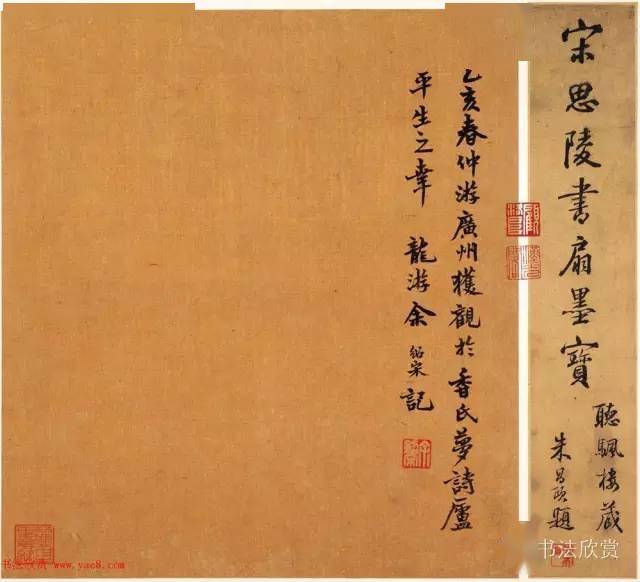 宋思陵書扇墨寶
聽颿樓藏
朱昌頤題
乙亥春仲游廣州獲觀於香氏夢詩廬
平生之幸 龍游余紹宋記
书法欣赏 www.yac8.com
书法欣赏